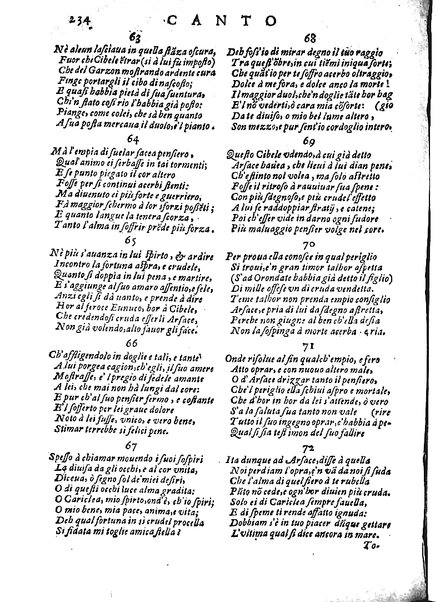 234 CANTO
63
Nè alcun lasciaua in quella stãza oscura,
Fuor che Cibele ẽtrar (si à lui fu imposto)
Che del Garzon mostrando ardente cura
Finge portargli il cibo di nascosto;
E quasi habbia pietà di sua suentura,
Ch'n stato così rio l'habbia già posto:
Piange, come colei, che sà ben quanto
A sua posta mercaua il duolo, e'l pianto.
64
Mà l'empia di suelar facea pensiero,
Qual animo ei serbasse in tai tormenti;
E se punto piegato il cor altero
Fosse per sì continui acerbi stenti:
Ma diuenuto ei più forte e guerriero,
Fà maggior schermo à lor sforzi possẽti;
E quanto langue la tenera scorza,
Tanto l'alma in soffrir prẽde più forza.
65
Nè più s'auanza in lui spirto, & ardire
Incontro la fortuna aspra, e crudele,
Quanto si doppia in lui pena, e martire,
E s'aggiunge al suo amaro assentio, e fele,
Anzi egli si dà uanto, e prende à dire
Hor al feroce Eunuco, hor à Cibele,
Che credendosi cruda esserli Arsace,
Non già volendo, alto fauor gli face.
66
Ch'affligendolo in doglie e tali, e tante
A lui porgea cagion, ch'egli, il suo amere
Mostrasse, e'l pregio di fedele amante
A lei, che mai non hà lungi dal core:
E pur ch'al suo pensier fermo, e costante
E'l sofferto per lei graue dolore
Noto à lei fusse, vnico, e vero bene,
Stimar terrebbe si felici pene.
67
Spesso à chiamar mouendo i suoi sospiri
La diuisa da gli occhi, e al cor vnita,
Diceua, ò segno sol de'miei desiri,
O di questi occhi luce alma gradita:
O Cariclea, mio spirto, ond'è, ch'io spiri;
O mio bene, mia pace, anima, e vita;
Deh qual fortuna in si crudel procella
Si fidata mi toglie amica stella?
68
Deh foss'io di mirar degno il tuo raggio
Tra quest'õbre, in cui tiẽmi iniqua sorte;
Che quãt'io per te soffro acerbo oltraggio,
Dolce à me fora, e dolce anco la morte!
Il maggior duol, ch'n doglie tãte hor hag
E'l nõ vederti, ò cara mia cõsorte: (gio
Da te diuiso, o mio bel lume altero,
Son mezzo, e pur sent'io cordoglio intero.
69
Questo Cibele vdendo, à cui già detto
Arsace hauea, che lieui à lui dian pene,
Ch'estinto nol volea, ma solo astretto
Fosse il ritroso à rauuiuar sua spene:
Con più sdegnoso, e più crudel effetto
A lui se raddoppiar stratij, e catene;
Poi ch'esser vide in darno ogni sudore
Più maluaggio pensier volge nel core.
70
Per proua ella conosce in qual periglio
Si troui, e'n gran timor talhor aspetta
(S'ad Orondate habbia già detto il figlio)
Di mille offese vn di cruda vendetta.
Teme talhor non prenda empio consiglio
Arsace, e pria di lui da sdegno astretta,
Perche non giugne al ben ch'ella desia
Non la sospinga à morte acerba, ria.
71
Onde risolue al fin qualch'empio, e fero
Atto oprar, e con nuouo altero male,
O d'Arsace drizzar tanto il pensiero,
Che'l periglio ella schiui aspro e mortale,
Che d'hor in hor da lei s'attende, ò vero
S'à la saluta sua tanto non vale (rire
Tutto il suo ingegno oprar, c'habbia à pe-
Qual si sia testimon del suo fallire
72
Ita dunque ad Arsace, disse à quella
Noi perdiam l'opra, e'n và da noi si suda
Che l'alma di quel fiero à te rubella
Piìto nõ cede, e ogn'hor diuien più cruda.
Solo ei di Cariclea sempre fauella,
E di speme ti rende affatto ignuda:
Dobbiam s'è in tuo piacer dũque gettare
L'vltima qual si dice ancora in mare.
To-